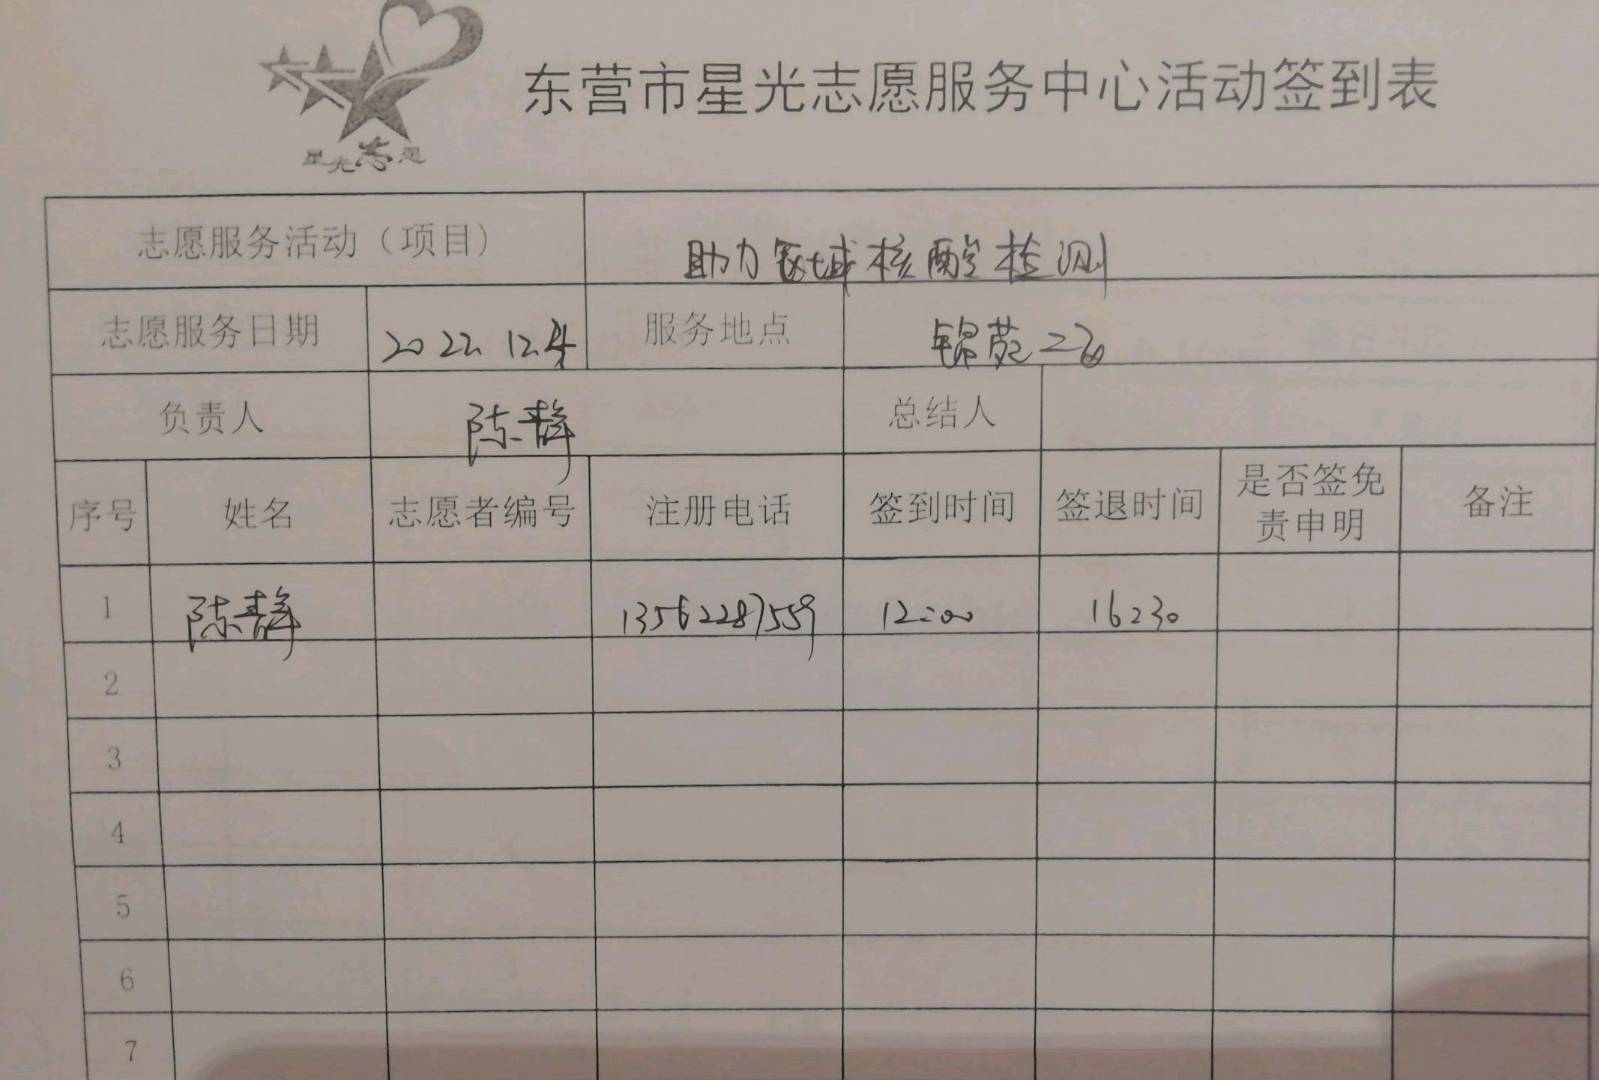 星光志愿
东营市星光志愿服务中心活动签到表
志愿服务活动（项目） 助力区域核酸检测
志愿服务日期 2022.12.4 服务地点 锦苑二
负责人 陈静 总结人
序号 姓名 志愿者编号 注册电话 签到时间 签退时间 是否签免责申明 备注
1 陈静 13562287559 12:00 16:30
2
3
4
5
6
7